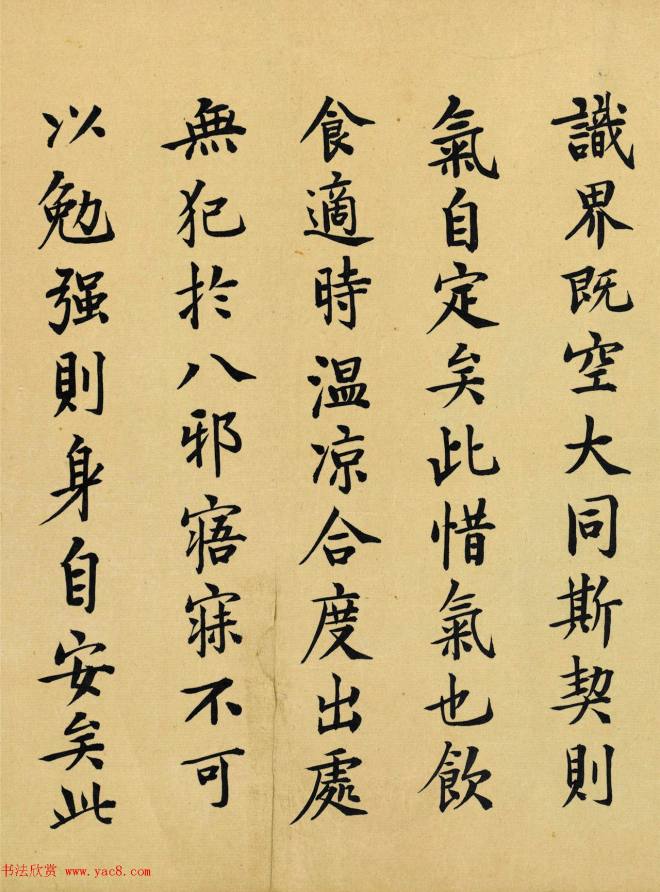 識界既空大同斯契則
氣自定矣此惜氣也飲
食適時温凉合度出處
無犯於八邪寤寐不可
以勉强則身自安矣此
书法欣赏 www.yac8.com